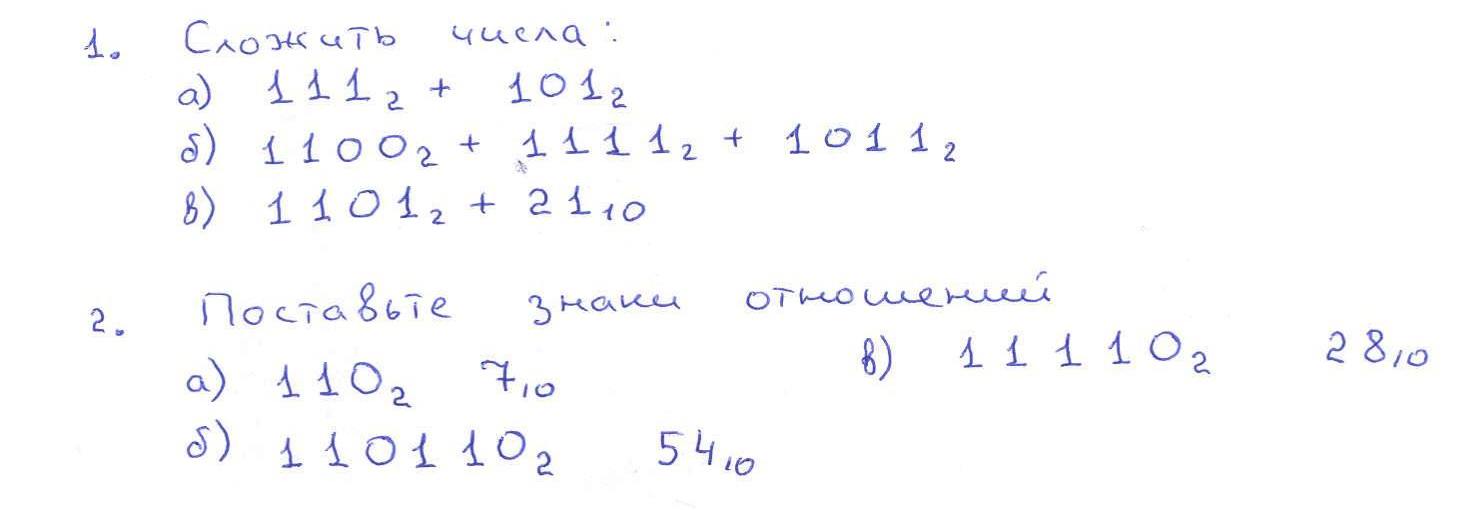 1. Сложить числа:
а) 111₂ + 101₂
б) 1100₂ + 1111₂ + 1011₂
в) 1101₂ + 21₁₀
2. Поставьте знаки отношений
а) 110₂ 7₁₀
б) 110110₂ 54₁₀
в) 11110₂ 28₁₀